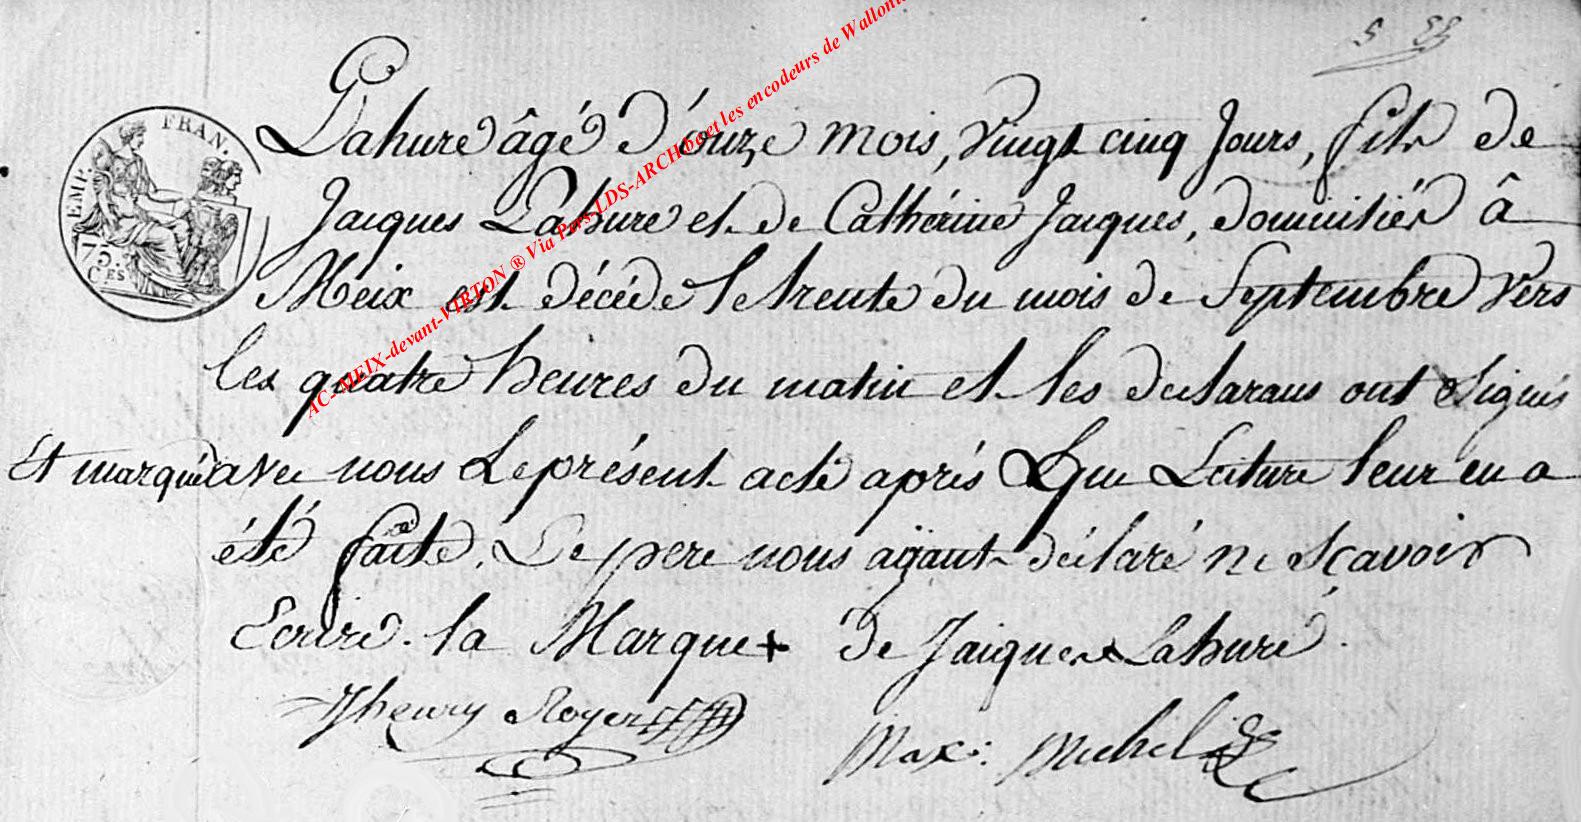 EMP. FRAN.
75.
CES
Lahure âgé d'onze mois, vingt cinq Jours, fils de
Jacques Lahure et de Cathérine Jacques, domiciliés â
Meix est décéde le trente du mois de Septembre vers
les quatre heures du matin et les declarans ont signés
Et marqué avec nous le présent acte aprés que Lecture leur en a
été faite. Le pere nous ayant déclaré ne sçavoir
Ecrire. la Marque + de Jacques Lahure.
Jhenry Royer
Max: Michel
AC-MEIX-devant-VIRTON ® Via Pers-LDS-ARCH.be et les encodeurs de Walloni